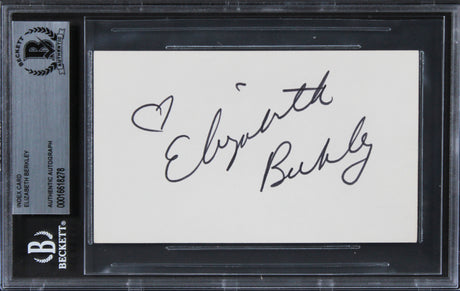 BECKETT
B
AUTHENTIC
INDEX CARD
ELIZABETH BERKLEY
AUTHENTIC AUTOGRAPH
00016618278
B
BECKETT®
♡ Elizabeth
Berkley